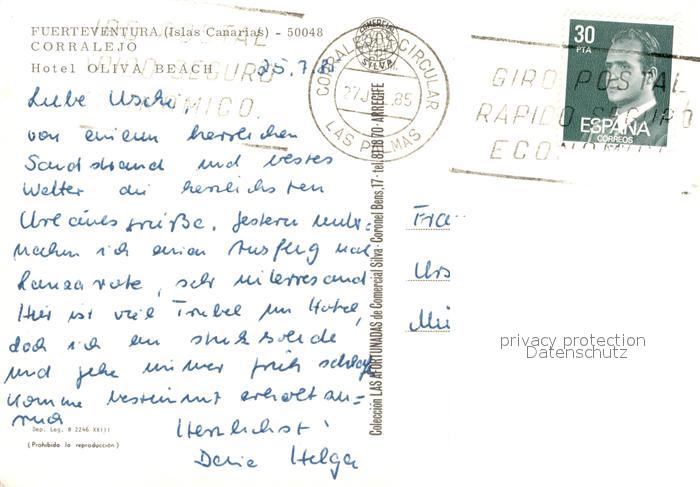 FUERTEVENTURA (Islas Canarias) - 50048
CORRALEJO
Hotel OLIVA BEACH 25.7.85
Liebe Uschi,
von einem herrlichen
Sandstrand und bestes
Wetter die herzlichsten
Urlaubsgrüße. Gestern unter-
nahm ich einen Ausflug nach
Lanzarote, sehr interessant
Hier ist viel Trubel im Hotel,
doch ich bin
und gehe immer früh schlafen
komme bestimmt erholt zu-
rück
Herzlichst
Deine Helga
Dep. Leg. B 2246 XXIII
(Prohibida la reproducción)
Colección LAS AFORTUNADAS de Comercial Silva - Coronel Bens, 17 - tel. 811870 - ARRECIFE
COMERCIAL
SILVA
CORRALEJO CIRCULAR
27 JUL 85
LAS PALMAS
GIRO POSTAL
RAPIDO SEGURO
ECONOMICO
GIRO POSTAL
RAPIDO SEGURO
ECONOMICO
30
PTA
ESPAÑA
CORREOS
Fra
Urs
Mü
privacy protection
Datenschutz